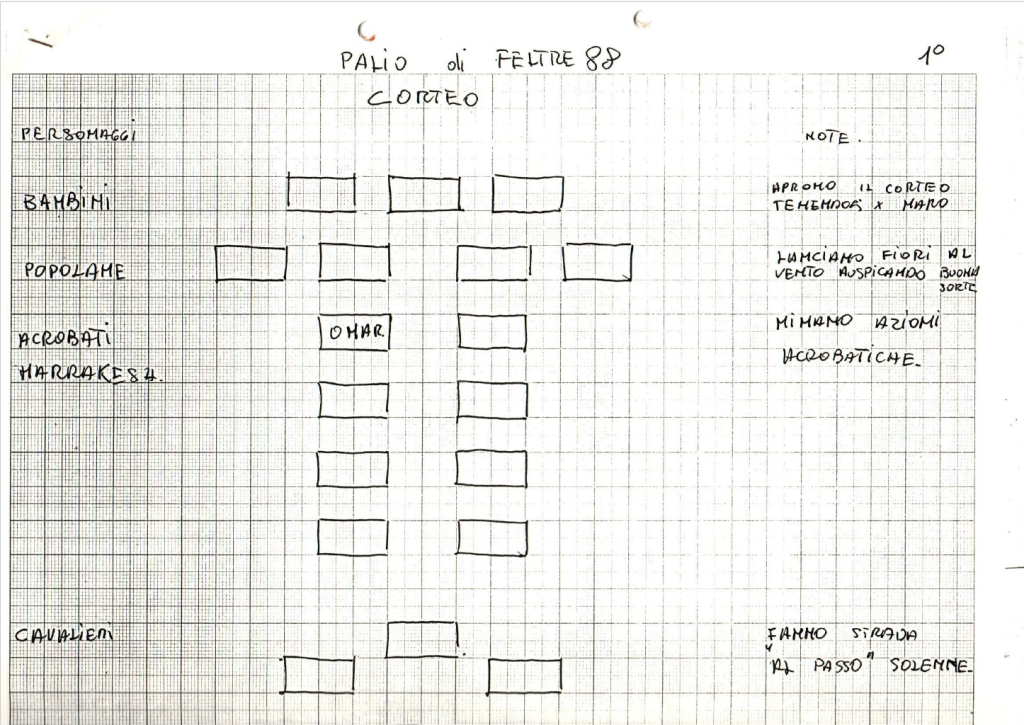 PALIO di FELTRE 88
1°
CORTEO
PERSONAGGI
NOTE.
BAMBINI
APRONO IL CORTEO
TENENDOSI X MANO
POPOLANE
LANCIANO FIORI AL
VENTO AUSPICANDO BUONA
SORTE
ACROBATI
OMAR
MIMANO AZIONI
MARRAKESH.
ACROBATICHE.
CAVALIERI
FANNO STRADA
"AL PASSO" SOLENNE.